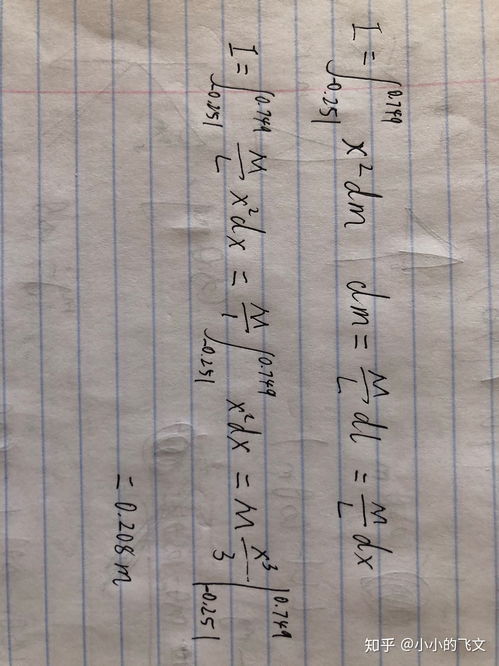 I = ∫_{-0.251}^{0.749} x² dm   dm = M/L dl = M/L dx
I = ∫_{-0.251}^{0.749} M/L x² dx = M/1 ∫_{-0.251}^{0.749} x² dx = M x³/3 |_{-0.251}^{0.749}
= 0.208 m
知乎 @小小的飞文